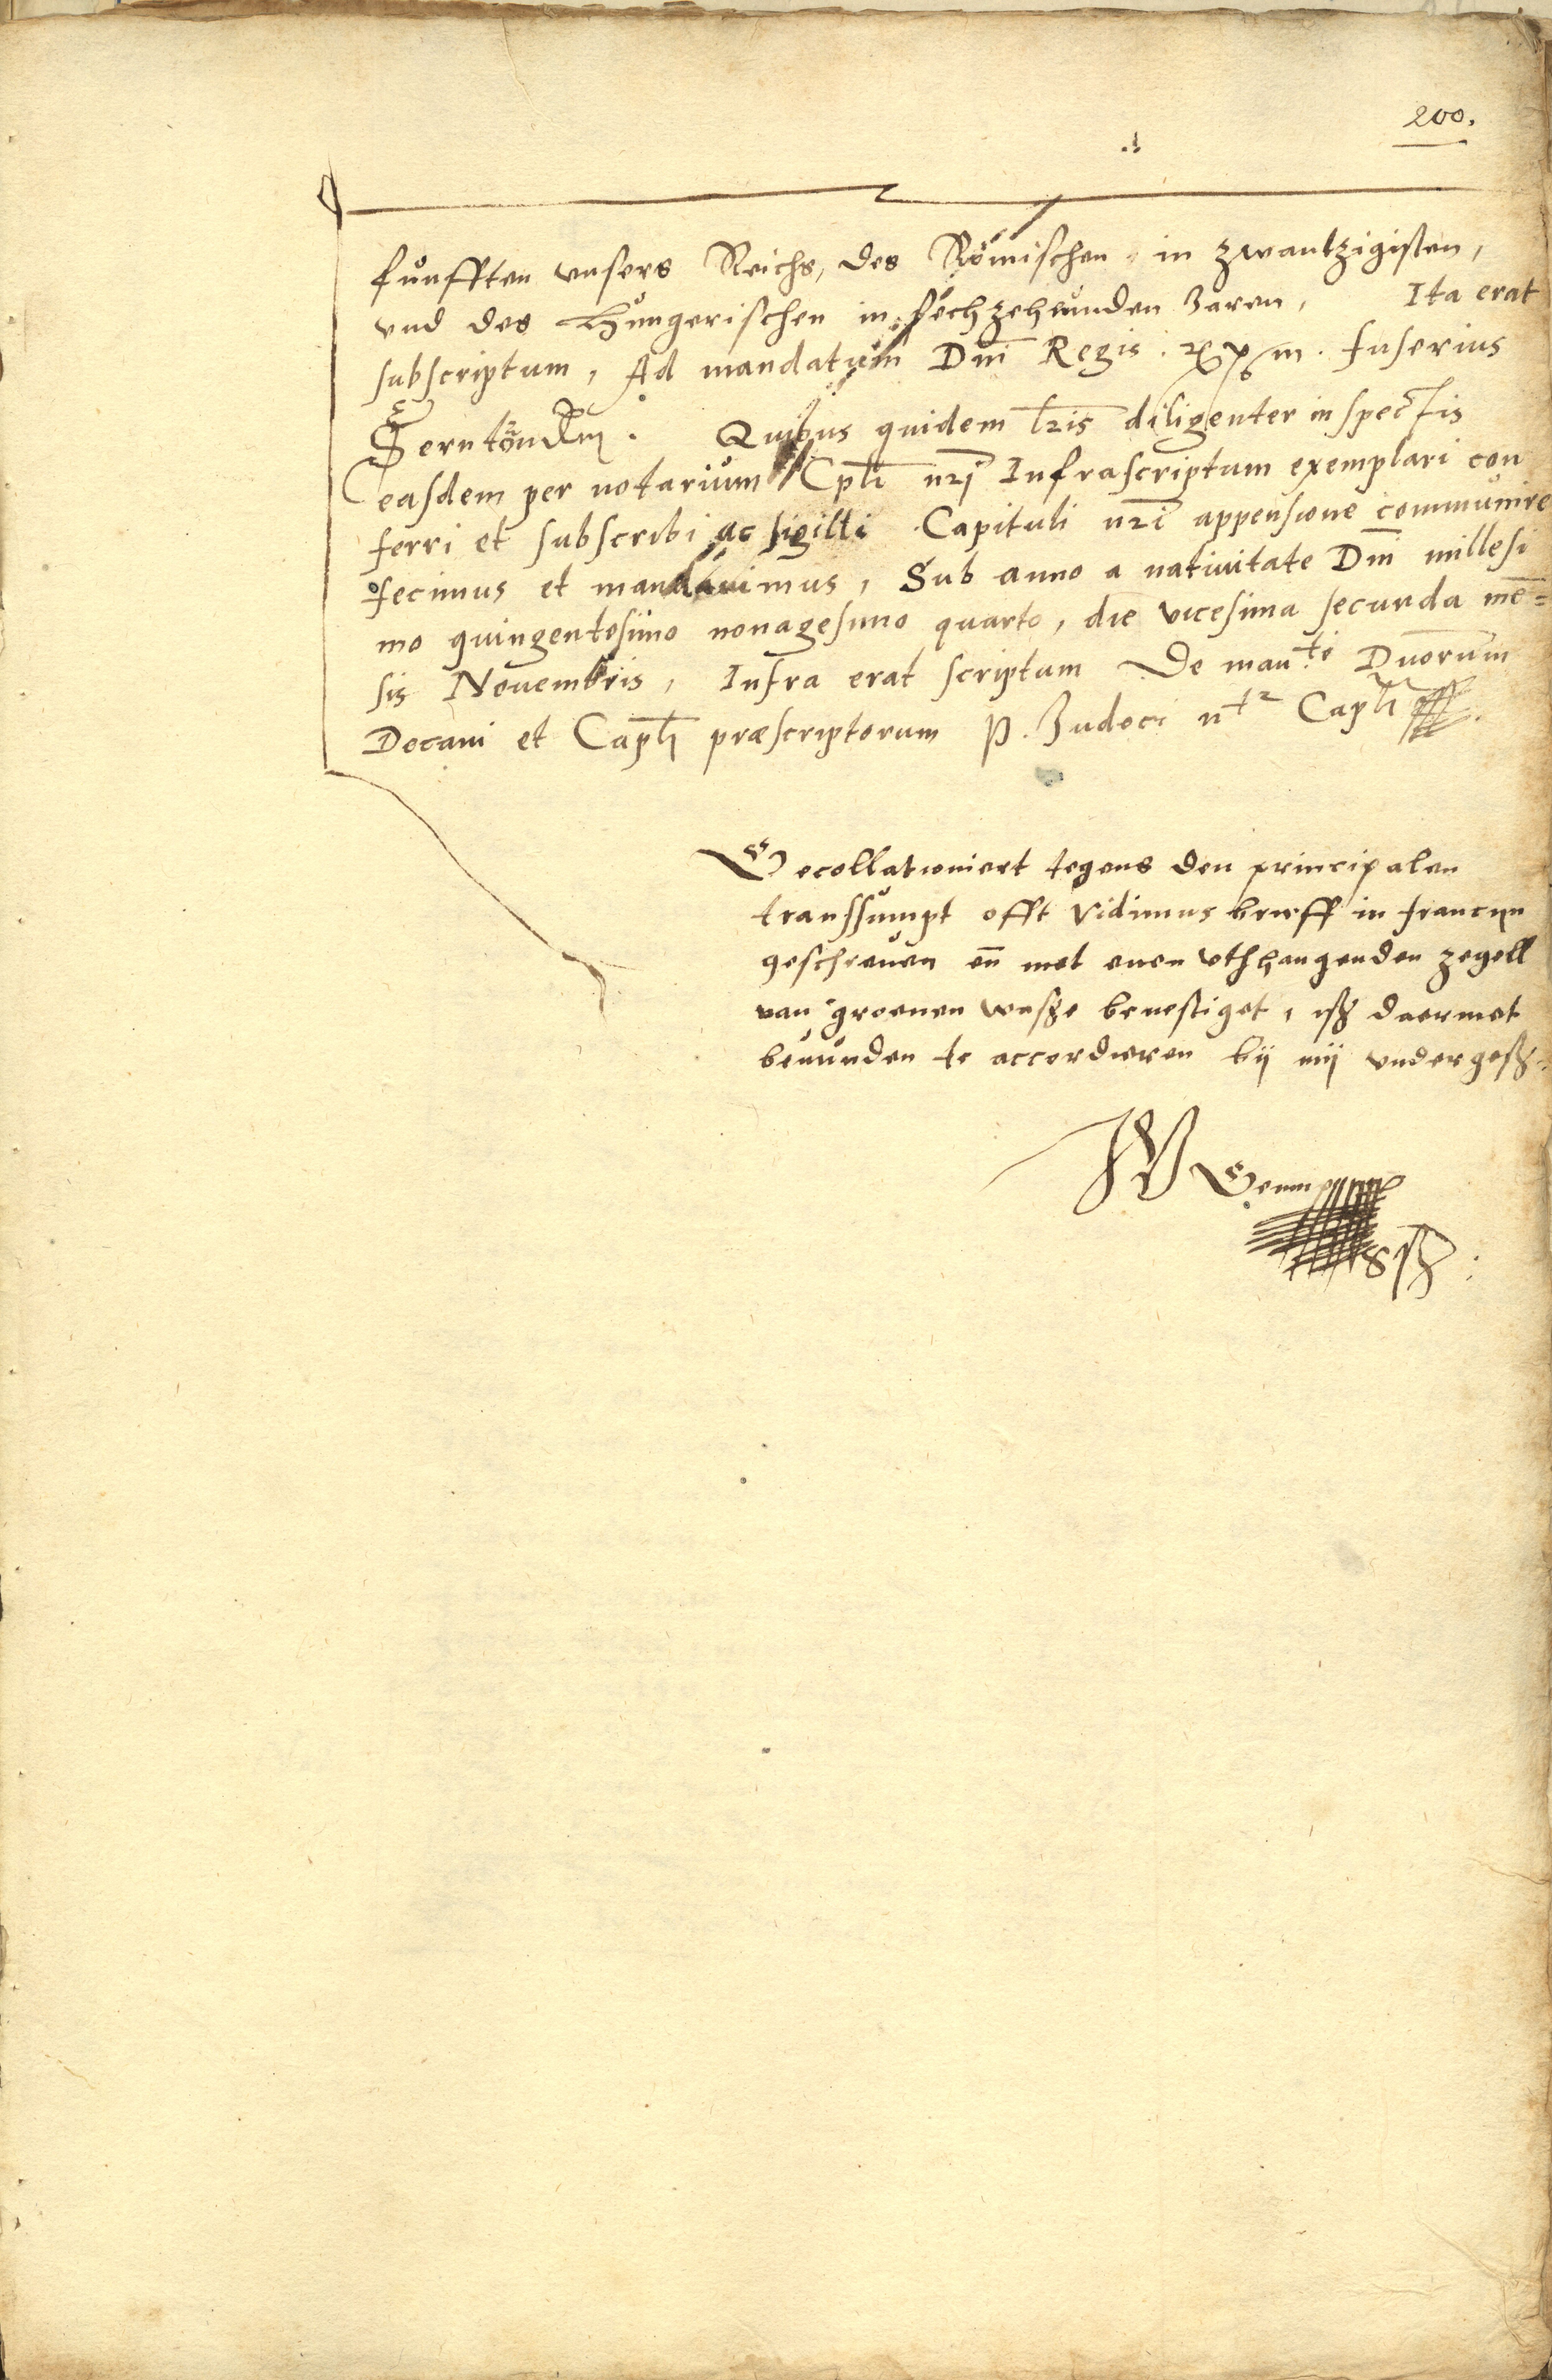 200.
funfften vnsers Reichs, des Römischen in zwantzigisten,
vnd des Hungerischen in sechzehenden Jaren, Ita erat
subscriptum, Ad mandatum Dm̃i Regis Inferius
Quibus quidem l̃ris diligenter inspectis
easdem per notarium Cpl̃i nr̃i Infrascriptum exemplari con
ferri et subscribi ac sigilli Capituli nr̃i appensione communire
fecimus et mandauimus, Sub anno a natiuitate Dm̃i millesi
mo quingentesimo nonagesimo quarto, die vicesima secunda mē=
sis Nouembris, Infra erat scriptum De man.to Dnorum
Decani et Capl̃i præscriptorum P. Judoci Capl̃i
Gecollationiert tegens den principalen
transsumpt offt Vidimus brieff in francyn
geschreuen eñ met enen vthhangenden zegell
van groenen wasse beuestiget, iss daermet
beuunden te accordieren bij mij vndergess:
W
sst: